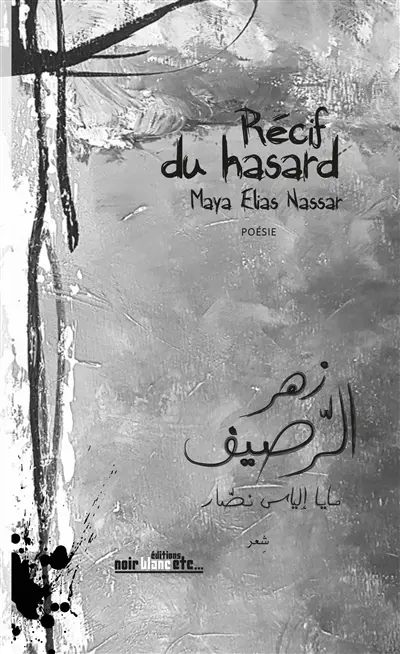 Récif
du hasard
Maya Elias Nassar
POÉSIE
زهر
الرّصيف
مايا إلياس نصّار
شِعر
éditions
noir blanc etc...